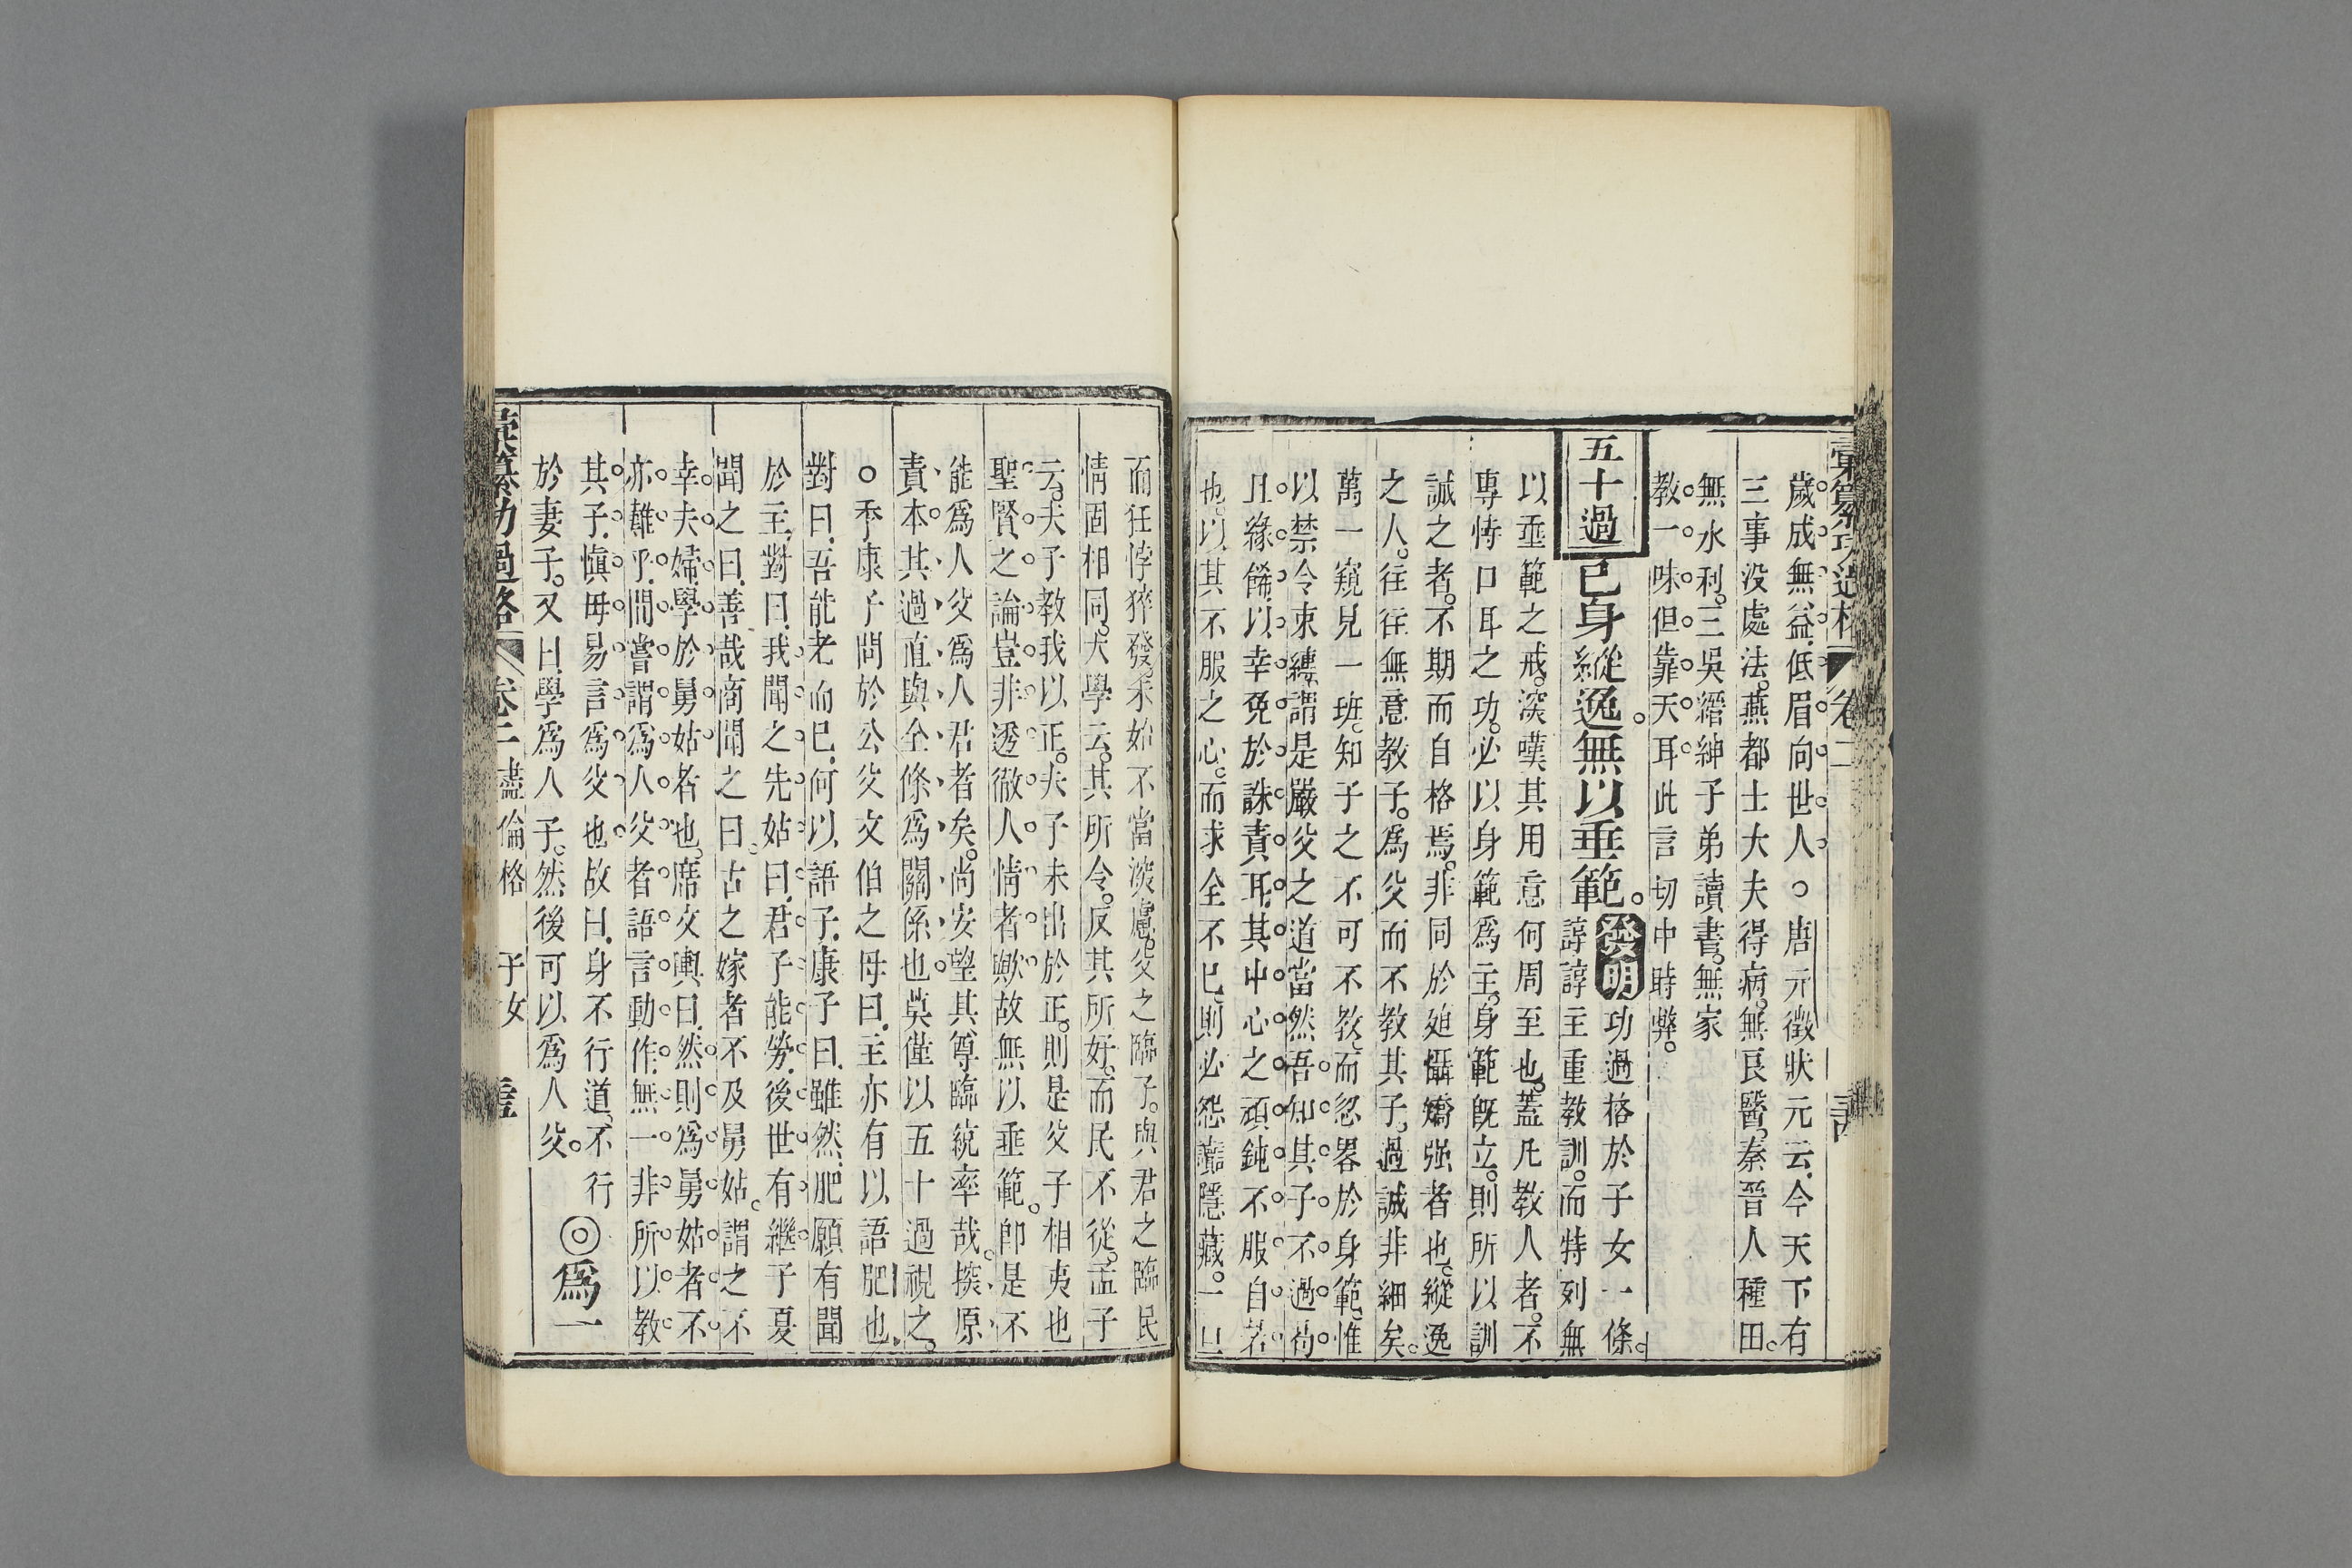 彙纂功過格 卷二
歲成無益低眉向世人○唐元徵狀元云今天下有
三事没處法燕都士大夫得病無良醫秦晉人種田
無水利三吳縉紳子弟讀書無家
教一味但靠天耳此言切中時弊
五十過
己身縱逸無以垂範
發明
功過格於子女一條
諄諄主重教訓而特列無
以垂範之戒深嘆其用意何周至也蓋凡教人者不
專恃口耳之功必以身範爲主身範既立則所以訓
誡之者不期而自格焉非同於廹懾矯强者也縱逸
之人往往無意教子爲父而不教其子過誠非細矣
萬一窺見一班知子之不可不教而忽畧於身範惟
以禁令束縛謂是嚴父之道當然吾知其子不過苟
且緣餙以幸免於誅責耳其中心之頑鈍不服自若
也以其不服之心而求全不已則必怨讟隱藏一旦
而狂悖猝發未始不當深慮父之臨子與君之臨民
情固相同大學云其所令反其所好而民不從孟子
云夫子教我以正夫子未出於正則是父子相夷也
聖賢之論豈非透徹人情者歟故無以垂範卽是不
能爲人父爲人君者矣尚安望其尊臨統率哉揆原
責本其過直與全條爲關係也莫僅以五十過視之
○季康子問於公父文伯之母曰主亦有以語肥也
對曰吾能老而已何以語子康子曰雖然肥願有聞
於主對曰我聞之先姑曰君子能勞後世有繼子夏
聞之曰善哉商聞之曰古之嫁者不及舅姑謂之不
幸夫婦學於舅姑者也席文輿曰然則爲舅姑者不
亦難乎間嘗謂爲人父者語言動作無一非所以教
其子愼毋易言爲父也故曰身不行道不行
於妻子又曰學爲人子然後可以爲人父
◎爲一
彙纂功過格 卷二 盡倫格 子女